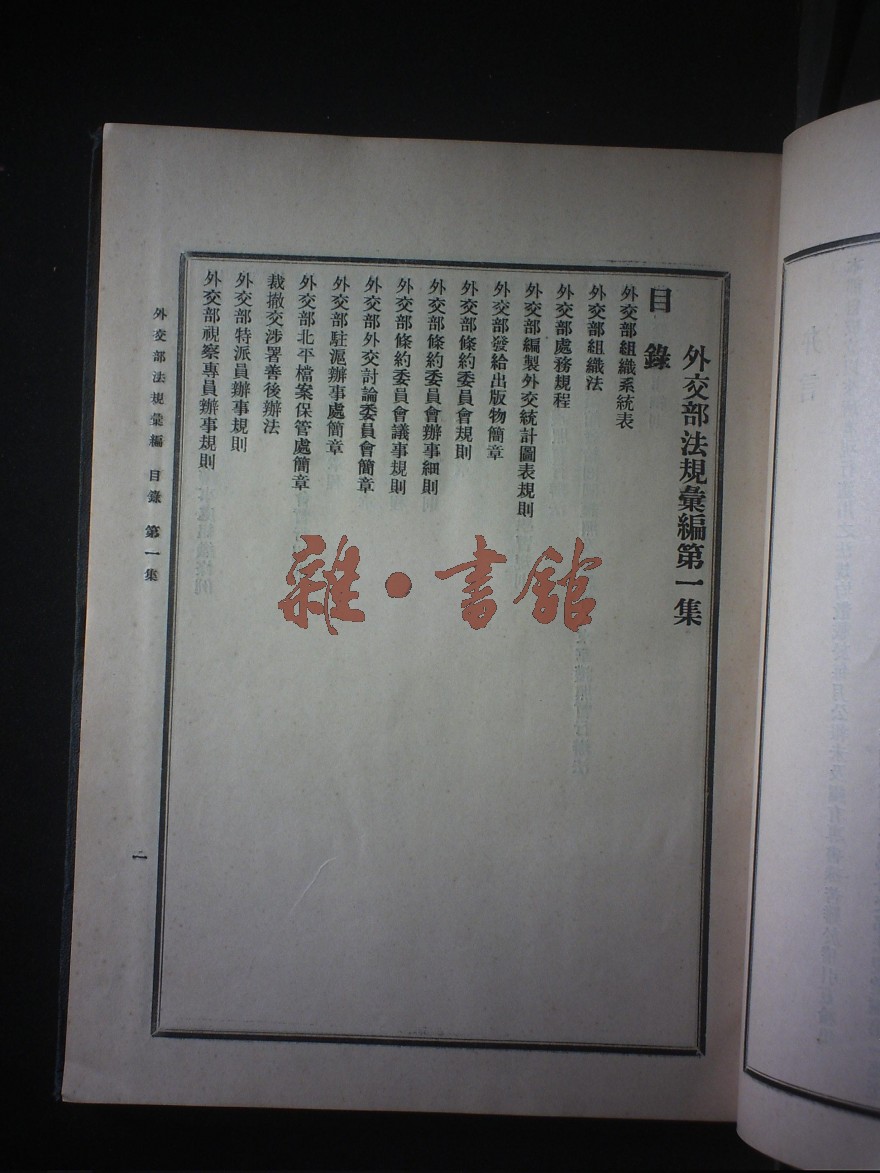 外交部法規彙編第一集
目錄
外交部組織系統表
外交部組織法
外交部處務規程
外交部編製外交統計圖表規則
外交部發給出版物簡章
外交部條約委員會規則
外交部條約委員會辦事細則
外交部條約委員會議事規則
外交部外交討論委員會簡章
外交部駐滬辦事處簡章
外交部北平檔案保管處簡章
裁撤交涉署善後辦法
外交部特派員辦事規則
外交部視察專員辦事規則
外交部法規彙編 目錄 第一集
雜·書館